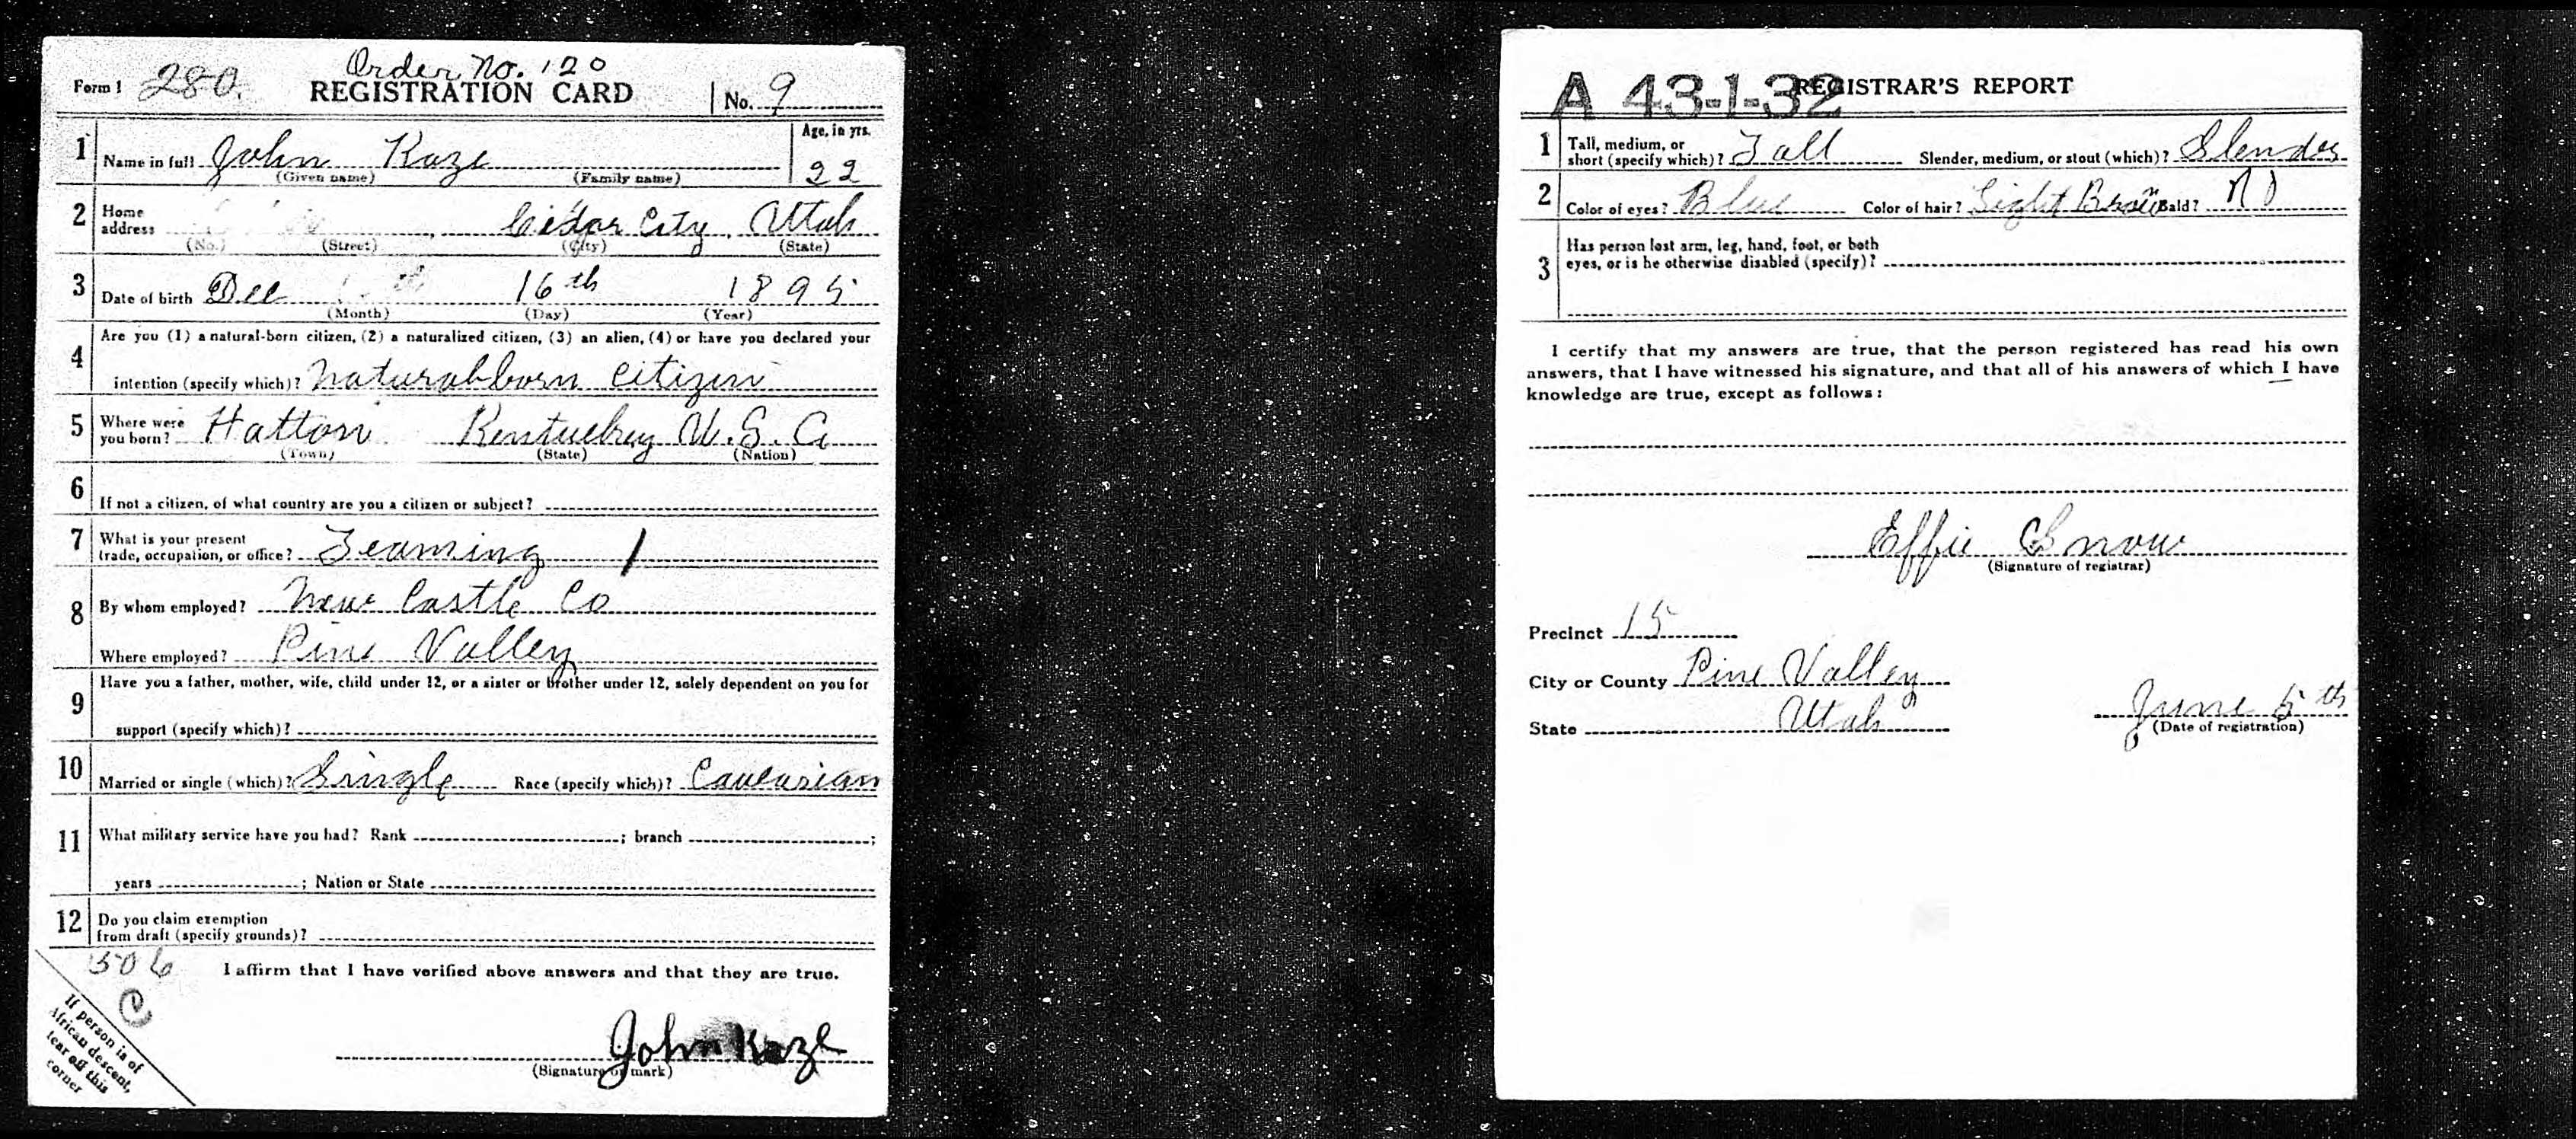 Order No. 120
Form 1 280. REGISTRATION CARD No. 9
1 Name in full John Kaze Age, in yrs. 22
(Given name) (Family name)
2 Home address Cedar City, Utah
(No.) (Street) (City) (State)
3 Date of birth Dec 16th 1895
(Month) (Day) (Year)
4 Are you (1) a natural-born citizen, (2) a naturalized citizen, (3) an alien, (4) or have you declared your
intention (specify which)? Natural born citizen
5 Where were you born? Hatton Kentuckey U.S.A
(Town) (State) (Nation)
6 If not a citizen, of what country are you a citizen or subject?
7 What is your present
trade, occupation, or office? Teaming
8 By whom employed? New Castle Co
Where employed? Pine Valley
9 Have you a father, mother, wife, child under 12, or a sister or brother under 12, solely dependent on you for
support (specify which)?
10 Married or single (which)? Single Race (specify which)? Caucasian
11 What military service have you had? Rank ; branch ;
years ; Nation or State
12 Do you claim exemption
from draft (specify grounds)?
306 I affirm that I have verified above answers and that they are true.
C
John Kaze
(Signature or mark)
If person is of
African descent,
tear off this
corner
A 43-1-32 REGISTRAR'S REPORT
1 Tall, medium, or
short (specify which)? Tall Slender, medium, or stout (which)? Slender
2 Color of eyes? Blue Color of hair? Light Brown Bald? No
3 Has person lost arm, leg, hand, foot, or both
eyes, or is he otherwise disabled (specify)?
I certify that my answers are true, that the person registered has read his own
answers, that I have witnessed his signature, and that all of his answers of which I have
knowledge are true, except as follows:
Effie Snow
(Signature of registrar)
Precinct 15
City or County Pine Valley
State Utah June 5th
(Date of registration)